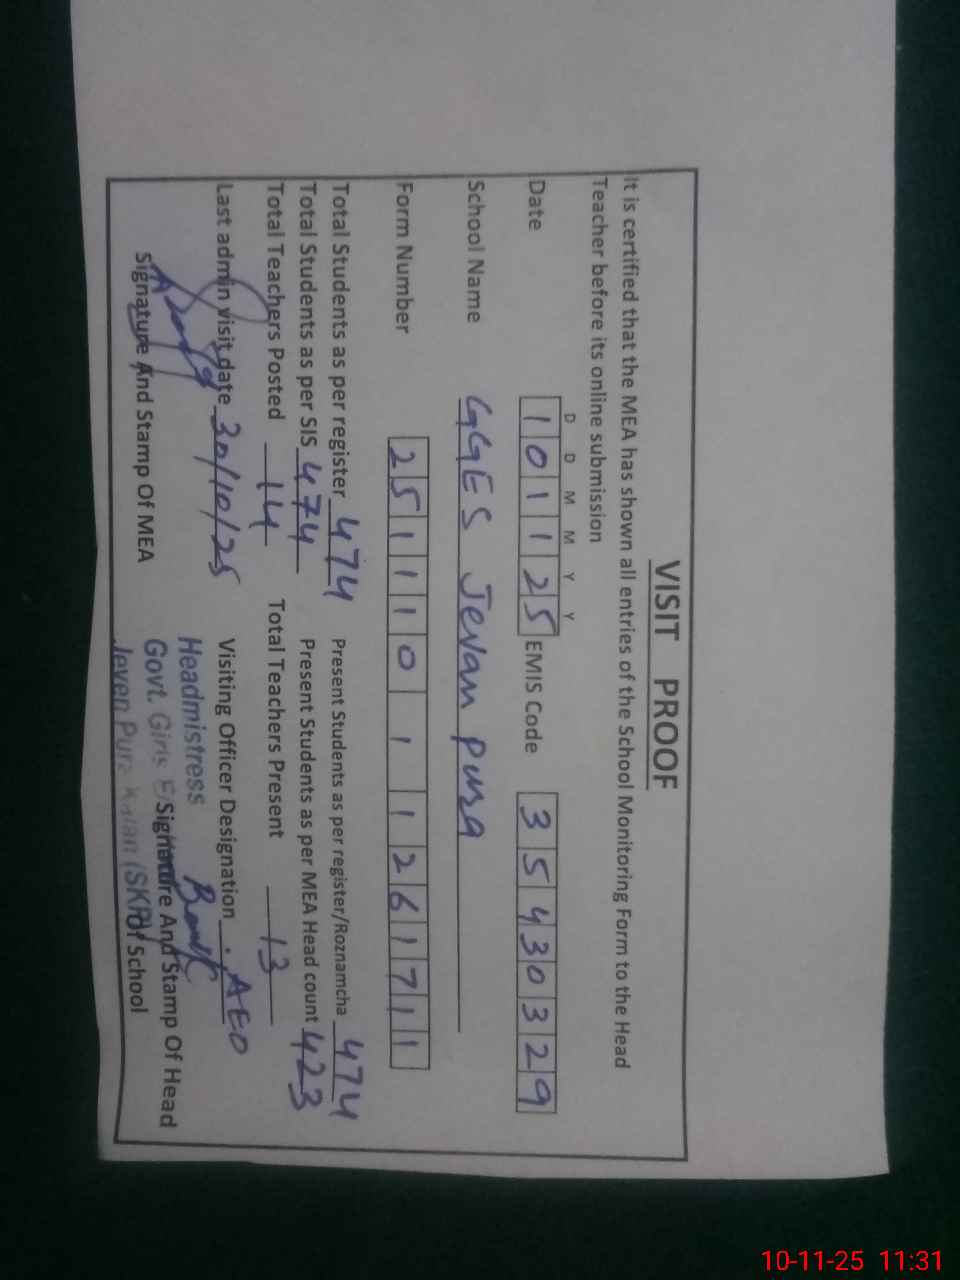 VISIT PROOF
It is certified that the MEA has shown all entries of the School Monitoring Form to the Head
Teacher before its online submission
D D M M Y Y
Date 1 0 1 1 2 5 EMIS Code 3 5 4 3 0 3 2 9
School Name GGES Jevan pura
Form Number 2 5 1 1 1 0 1 1 2 6 1 7 1 1
Total Students as per register 474 Present Students as per register/Roznamcha 474
Total Students as per SIS 474 Present Students as per MEA Head count 423
Total Teachers Posted 14 Total Teachers Present 13
Last admin visit date 30/10/25 Visiting Officer Designation AEO
Headmistress
Govt. Girls
Signature And Stamp Of MEA Signature And Stamp Of Head
Jeven Pura Kalan (SKP) Of School
10-11-25 11:31